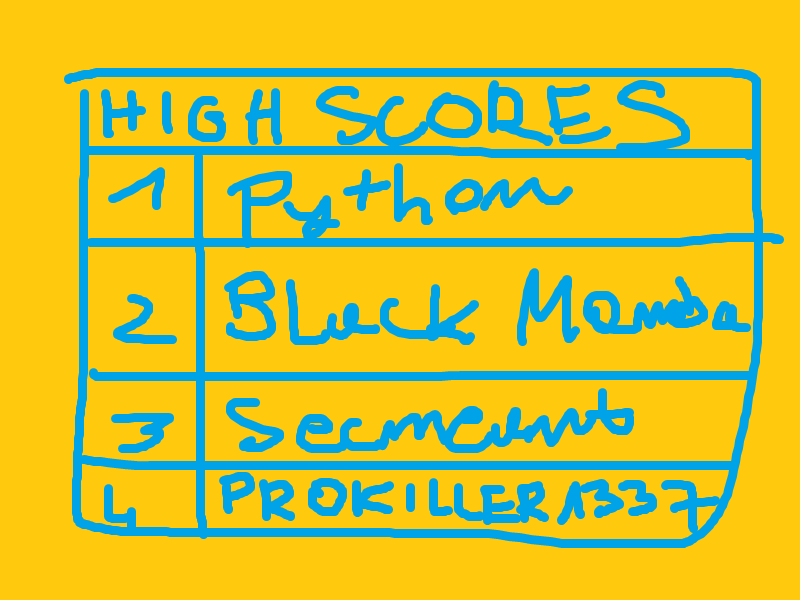 HIGH SCORES
1 Python
2 BLack Mamba
3
4 PROKILLER1337